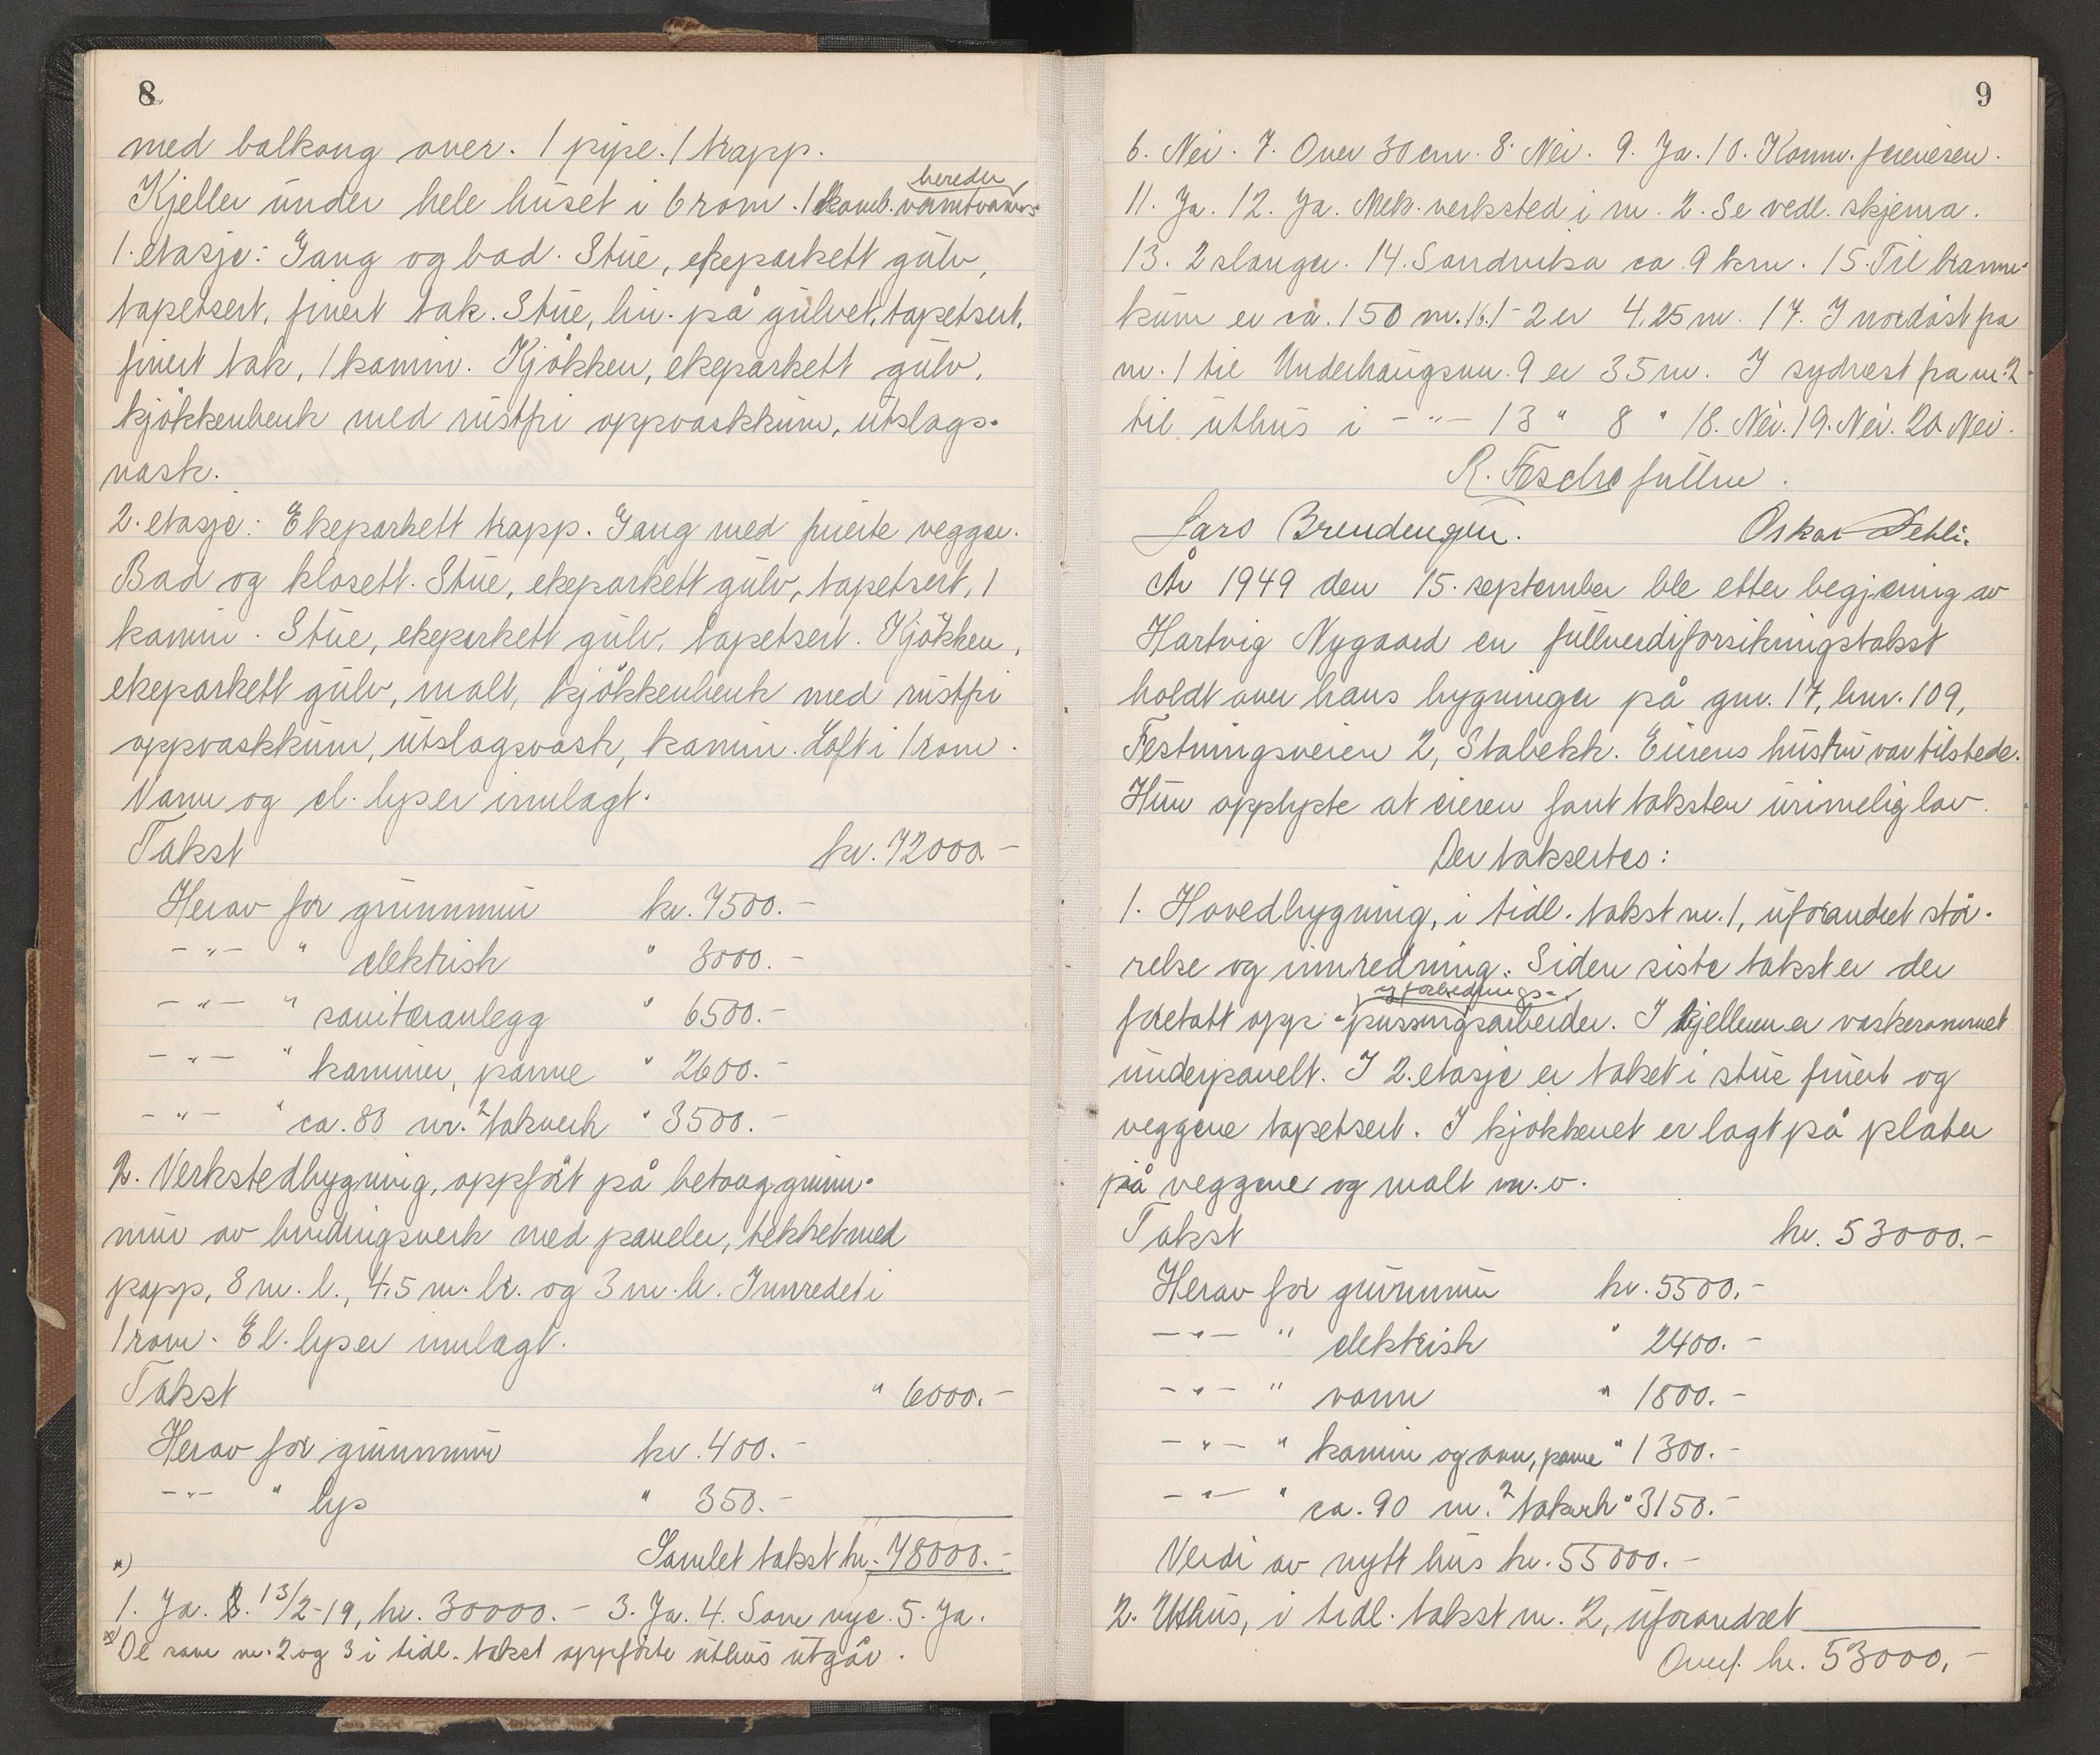 8
med balkong over. 1 pipe. 1 trapp.
Kjeller under hele huset i 6 rom. 1 komb. varmtvanns-
bereder
1. etasje: Gang og bad. Stue, ekeparkett gulv,
tapetsert, finert tak. Stue, lin. på gulvet, tapetsert,
finert tak, 1 kamin. Kjøkken, ekeparkett gulv,
kjøkkenbenk med rustfri oppvaskkum, utslags-
vask.
2. etasje: Ekeparkett trapp. Gang med finerte vegger.
Bad og klosett. Stue, ekeparkett gulv, tapetsert, 1
kamin. Stue, ekeparkett gulv, tapetsert. Kjøkken,
ekeparkett gulv, malt, kjøkkenbenk med rustfri
oppvaskkum, utslagsvask, kamin. Loft i 1 rom.
Vann og el. lys er innlagt.
Takst kr. 72000.-
Herav for grunnmur kr. 7500.-
-"- " elektrisk " 3000.-
-"- " sanitæranlegg " 6500.-
-"- " kaminer, panne " 2600.-
-"- " ca. 80 m.² takverk " 3500.-
2. Verkstedbygning, oppført på betonggrunn-
mur av bindingsverk med paneler, tekket med
papp, 8 m. l., 4,5 m. br. og 3 m. h. Innredet i
1 rom. El. lys er innlagt.
Takst " 6000.-
Herav for grunnmur kr. 400.-
-"- " lys " 350.-
Samlet takst kr. 78000.-
x)
1. Ja. 2. 13/2-19, kr. 30000.- 3. Ja. 4. Som nye. 5. Ja.
x) De som nr. 2 og 3 i tidl. takst oppførte uthus utgår.
9
6. Nei. 7. Over 30 cm. 8. Nei. 9. Ja. 10. Komm. feievesen.
11. Ja. 12. Ja. Mek. verksted i nr. 2. Se vedl. skjema.
13. 2 slanger. 14. Sandvika ca. 9 km. 15. Til brann-
kum er ca. 150 m. 16. 1-2 er 4,25 m. 17. I nordøst fra
nr. 1 til Underhaugsvn. 9 er 35 m. I sydvest fra nr. 2
til uthus i -"- 13 " 8 " 18. Nei. 19. Nei. 20. Nei.
Lars Brendengen. Oskar Dehli.
År 1949 den 15. september ble etter begjæring av
Hartvig Nygaard en fullverdiforsikringstakst
holdt over hans bygninger på gnr. 17, bnr. 109,
Festningsveien 2, Stabekk. Eierens hustru var tilstede.
Hun opplyste at eieren fant taksten urimelig lav.
Der taksertes:
1. Hovedbygning, i tidl. takst nr. 1, uforandret stør-
relse og innredning. Siden siste takst er der
og forbedrings-
foretatt opp-pussingsarbeider. I kjelleren er vaskerommet
underpanelt. I 2. etasje er taket i stue finert og
veggene tapetsert. I kjøkkenet er lagt på plater
på veggene og malt m.v.
Takst kr. 53000.-
Herav for grunnmur kr. 5500.-
-"- " elektrisk " 2400.-
-"- " vann " 1800.-
-"- " kamin og ovn, panne " 1300.-
-"- " ca. 90 m.² takverk " 3150.-
Verdi av nytt hus kr. 55000.-
2. Uthus, i tidl. takst nr. 2, uforandret
Overf. kr. 53000.-